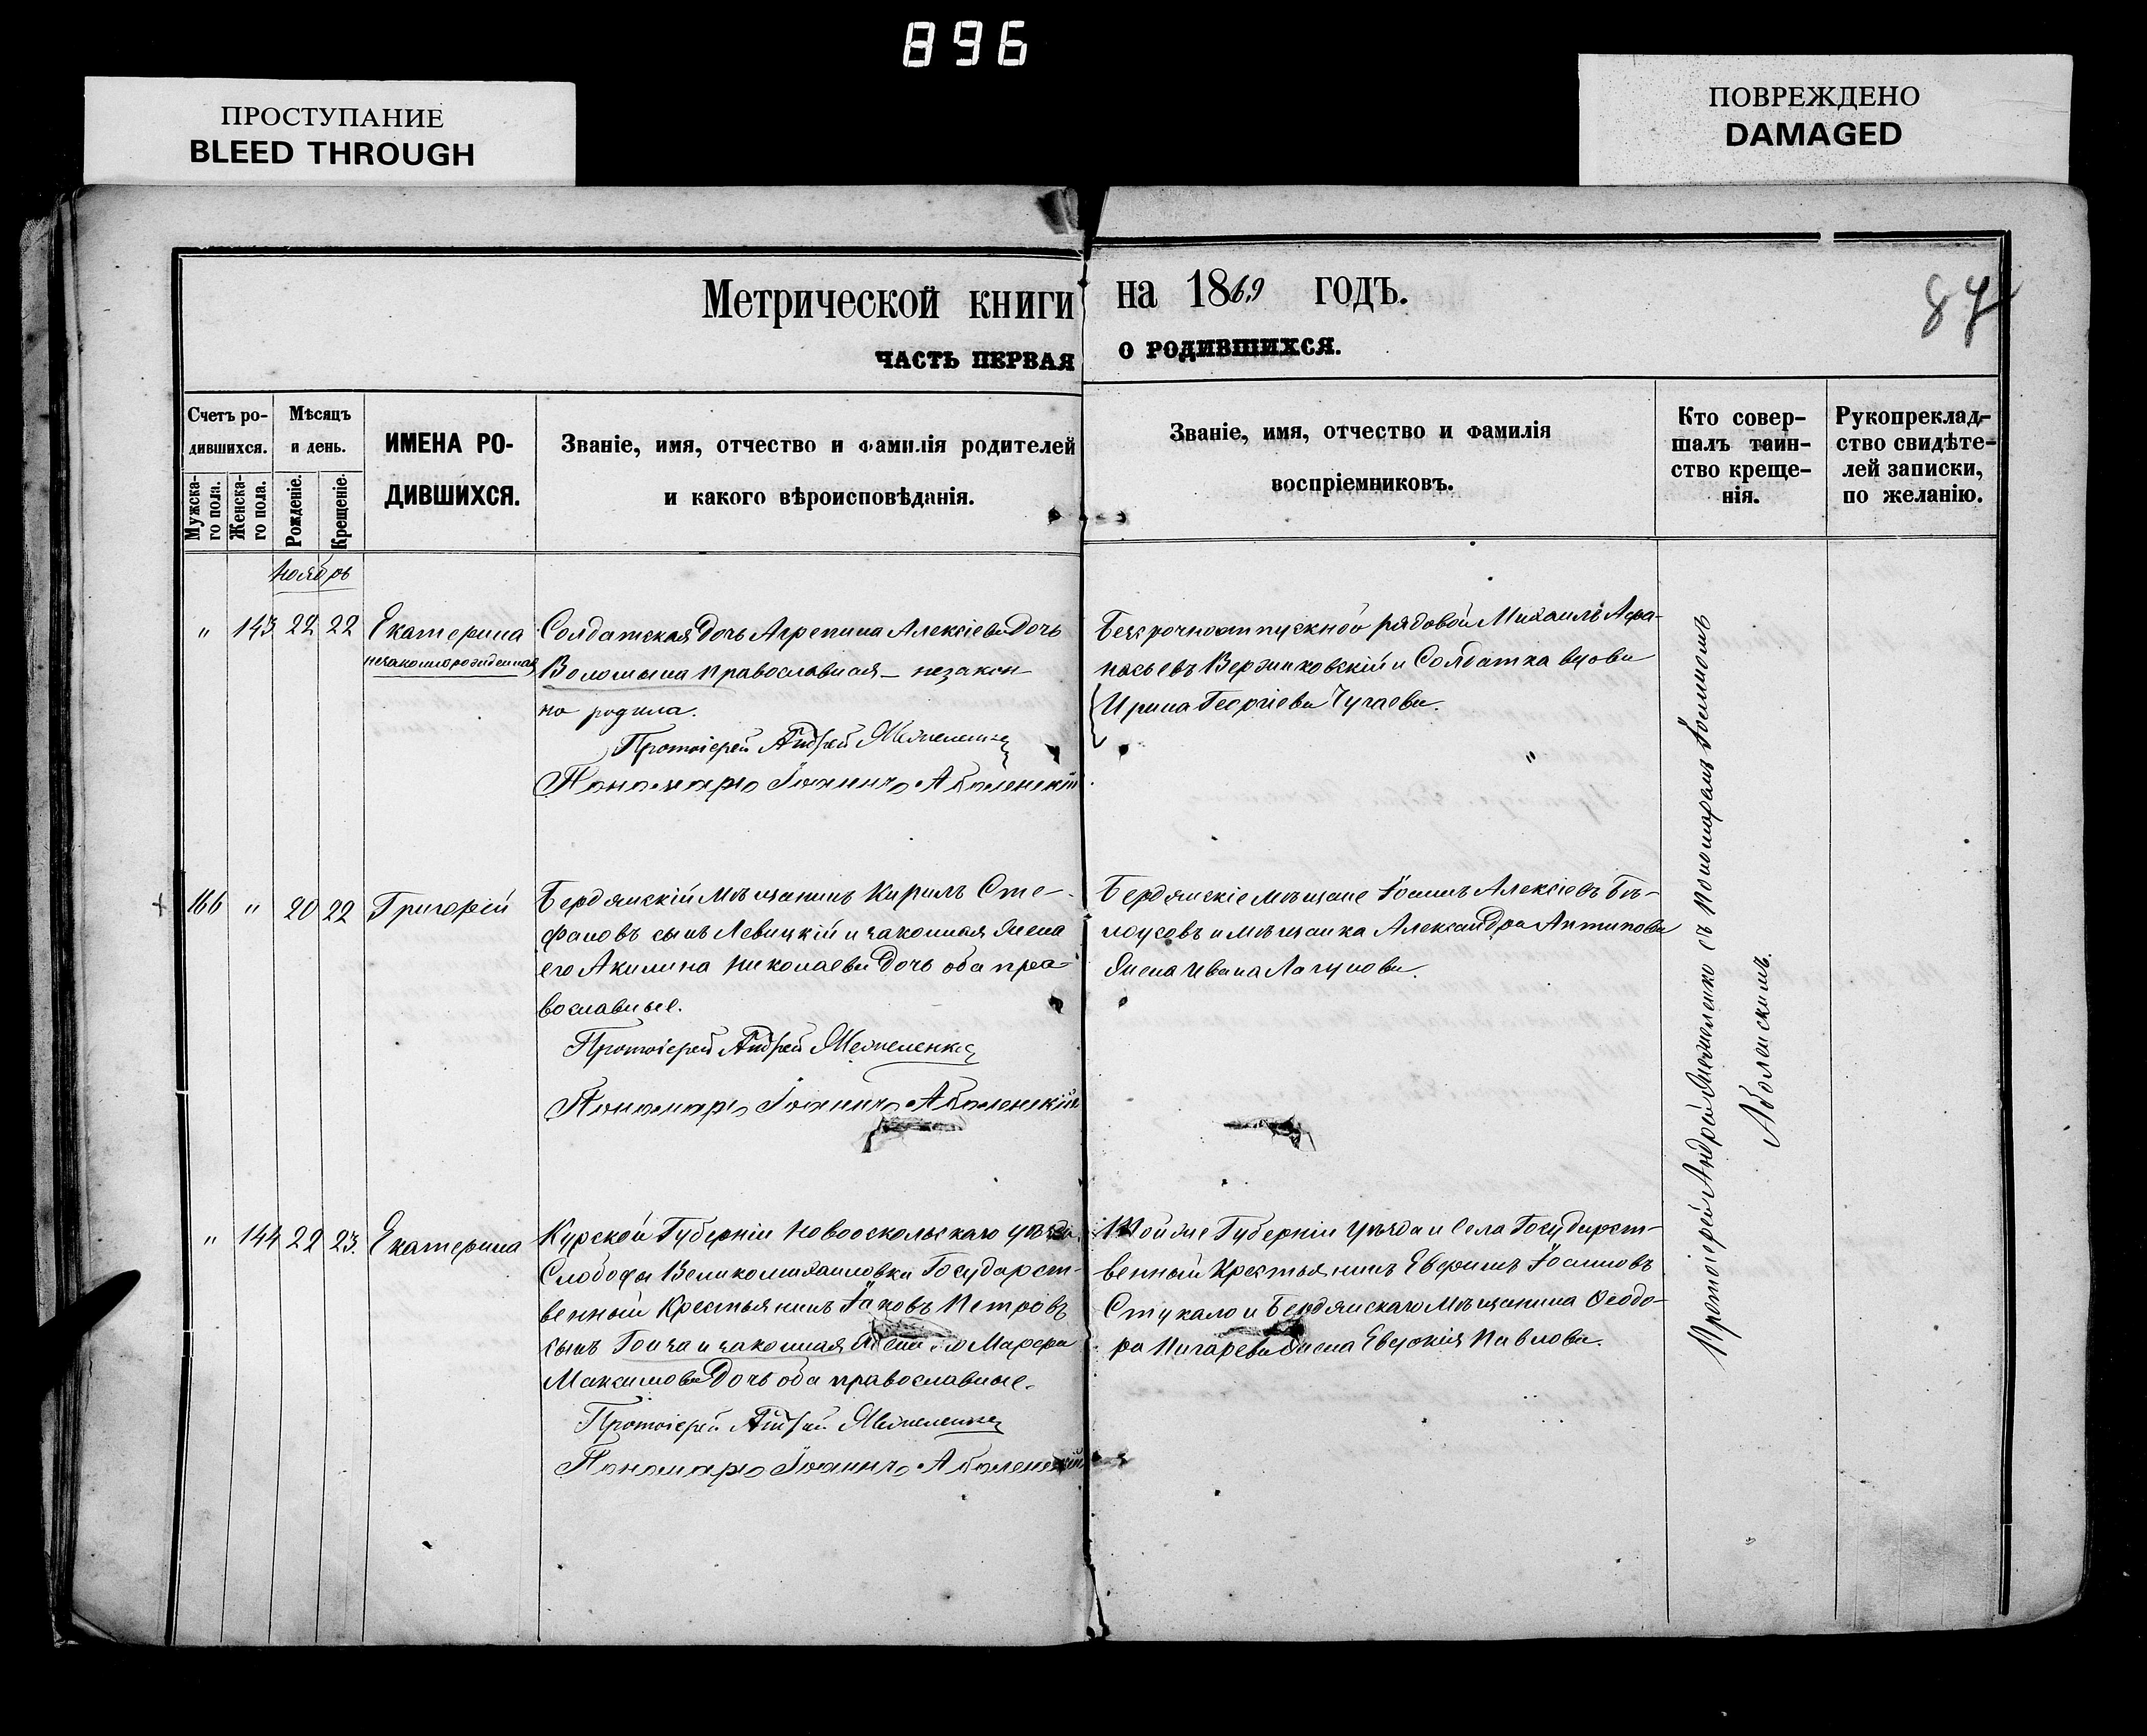 896
ПРОСТУПАНИЕ
BLEED THROUGH
ПОВРЕЖДЕНО
DAMAGED
Метрической книги на 1869 годъ.
87
ЧАСТЬ ПЕРВАЯ О РОДИВШИХСЯ.
Счетъ ро-
дившихся.
Мужска-
го пола.
Женска-
го пола.
Мѣсяцъ
и день.
Рожденіе.
Крещеніе.
ИМЕНА РО-
ДИВШИХСЯ.
Званіе, имя, отчество и фамилія родителей
и какого вѣроисповѣданія.
Званіе, имя, отчество и фамилія
воспріемниковъ.
Кто совер-
шалъ таин-
ство креще-
нія.
Рукоприклад-
ство свидѣте-
лей записки,
по желанію.
Ноябрь
" 143 22 22 Екатерина
незаконнорожденная
Солдатская дочь Агрепина Алексіева дочь
Волошина православная — незакон
но родила.
Протоіерей Андрей Межеленко
Пономарь Іоаннъ Аболенскій
Безсрочноотпускной рядовой Михаилъ Афа-
насьевъ и Солдатка вдова
Ирина Георгіева Чугаева.
"
166 " 20 22 Григорій
Бердянскій мѣщанинъ Кирилъ Сте-
фановъ сынъ Левицкій и законная жена
его Акилина Николаева дочь оба пра-
вославные.
Протоіерей Андрей Межеленко
Пономарь Іоаннъ Аболенскій
Бердянскіе мѣщане Іоаннъ Алексіевъ Бѣ-
лоусовъ и мѣщанка Александра Антипова
жена Ивана Лагунова.
" 144 22 23. Екатерина
Курской Губерніи Новооскольскаго уѣзда
Слободы Великомихаиловки Государст-
венный Крестьянинъ Іаковъ Петровъ
сынъ Гонча и законная жена его Марфа
Максимова дочь оба православные.
Протоіерей Андрей Межеленко
Пономарь Іоаннъ Аболенскій
Той же Губерніи Уѣзда и Села Государст-
венный Крестьянинъ Евфимъ Іоанновъ
Стукало и Бердянскаго мѣщанина Ѳеодо-
ра Пигарева жена Евдокія Павлова.
Протоіерей Андрей Межеленко съ Пономаремъ Іоанномъ
Аболенскимъ.